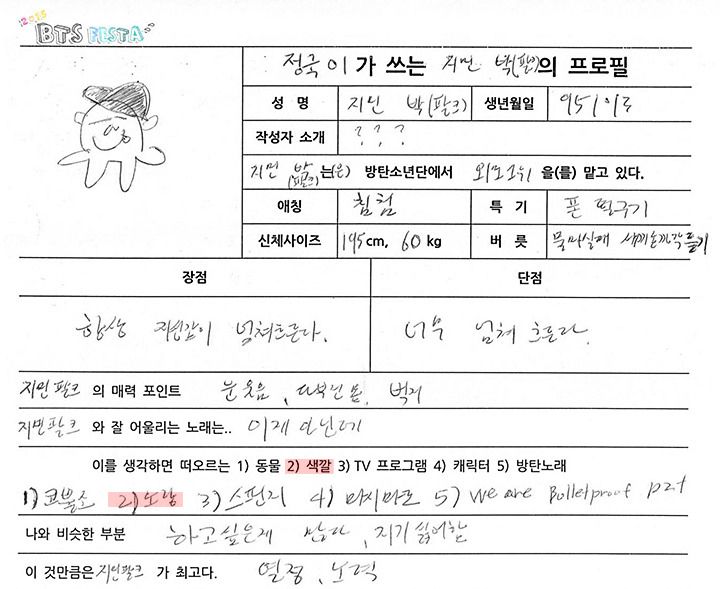 2015
BTS FESTA
정국이가 쓰는 지민 박(팔크)의 프로필
성 명 지민 박(팔크) 생년월일 95
작성자 소개 ? ? ?
지민 박(팔크)는(은) 방탄소년단에서 외모 1위 을(를) 맡고 있다.
애칭 침침 특 기 폰 떨구기
신체사이즈 195cm, 60kg 버 릇 물마실때 새끼손가락 들기
장점 단점
항상 자신감이 넘쳐흐른다. 너무 넘쳐 흐른다.
지민팔크 의 매력 포인트 눈웃음, 벅지
지민팔크 와 잘 어울리는 노래는.. 이게 아닌데
이를 생각하면 떠오르는 1) 동물 2) 색깔 3) TV 프로그램 4) 캐릭터 5) 방탄노래
1) 코뿔소 2) 노랑 3) 스펀지 4) 마시마로 5) We are Bulletproof pt2
나와 비슷한 부분 하고싶은게 많다, 지기 싫어함
이 것만큼은 지민팔크 가 최고다. 열정, 노력